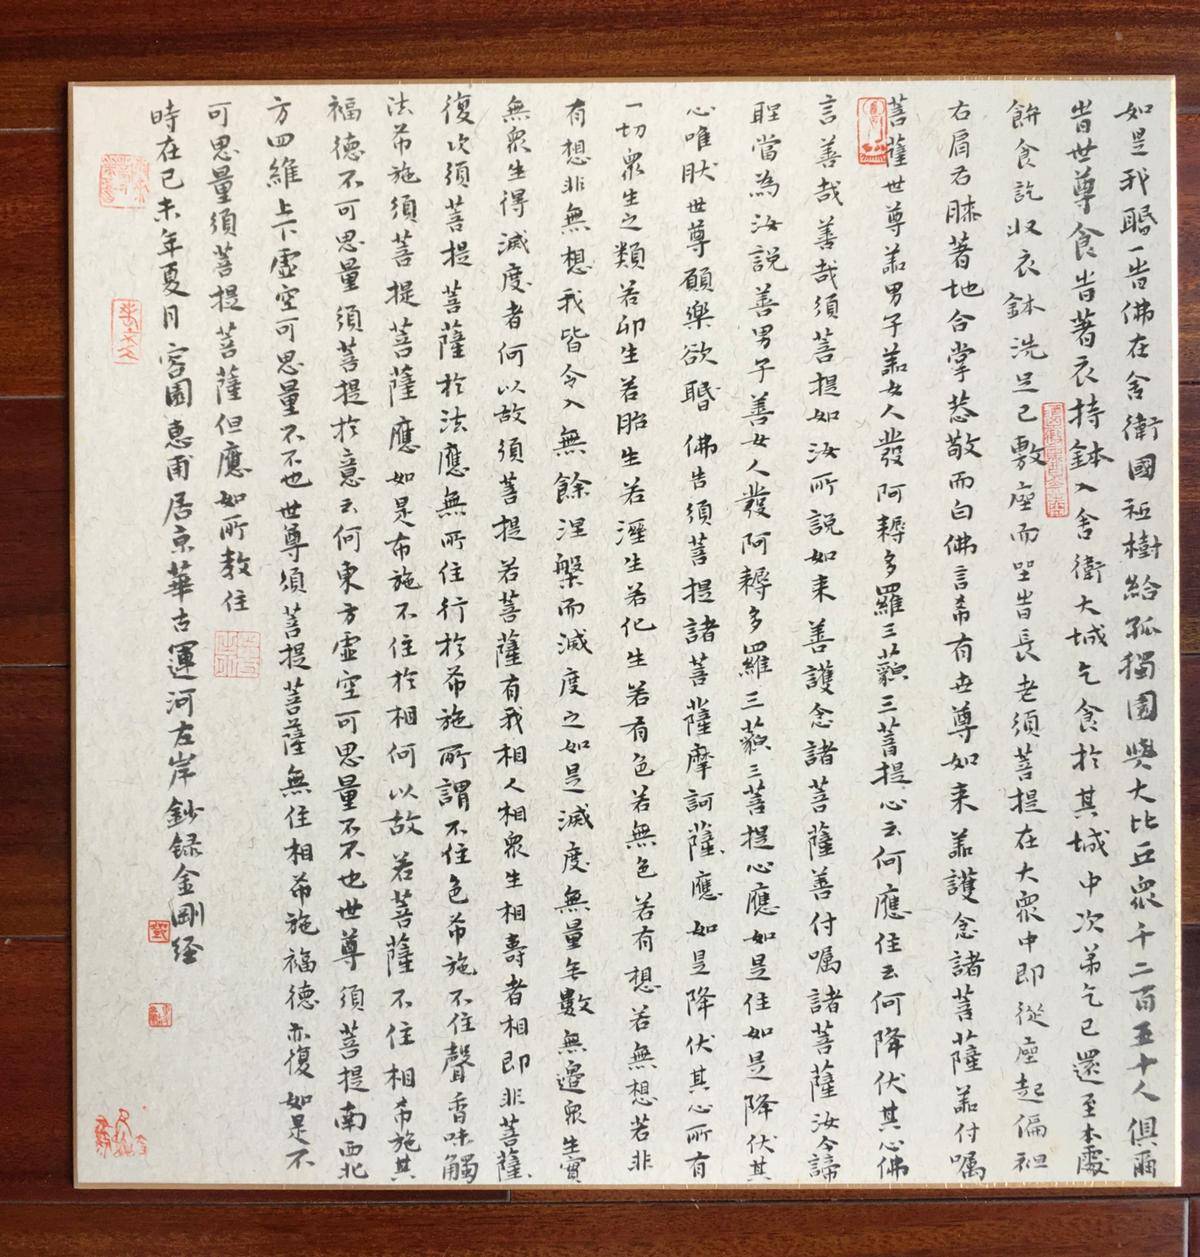 如是我聞一時佛在舍衛國祗樹給孤獨園與大比丘眾千二百五十人俱爾
時世尊食時著衣持鉢入舍衛大城乞食於其城中次第乞已還至本處
飯食訖収衣鉢洗足已敷座而坐時長老須菩提在大眾中即從座起偏袒
右肩右膝著地合掌恭敬而白佛言希有世尊如来善護念諸菩薩善付囑
諸菩薩世尊善男子善女人發阿耨多羅三藐三菩提心云何應住云何降伏其心佛
言善哉善哉須菩提如汝所說如来善護念諸菩薩善付囑諸菩薩汝今諦
聽當為汝說善男子善女人發阿耨多羅三藐三菩提心應如是住如是降伏其
心唯然世尊願樂欲聞佛告須菩提諸菩薩摩訶薩應如是降伏其心所有
一切眾生之類若卵生若胎生若濕生若化生若有色若無色若有想若無想若非
有想非無想我皆令入無餘涅槃而滅度之如是滅度無量無數無邊眾生實
無眾生得滅度者何以故須菩提若菩薩有我相人相眾生相壽者相即非菩薩
復次須菩提菩薩於法應無所住行於布施所謂不住色布施不住聲香味觸
法布施須菩提菩薩應如是布施不住於相何以故若菩薩不住相布施其
福德不可思量須菩提於意云何東方虛空可思量不不也世尊須菩提南西北
方四維上下虛空可思量不不也世尊須菩提菩薩無住相布施福德亦復如是不
可思量須菩提菩薩但應如所教住
時在己未年夏月 客園惠甫居京華古運河左岸鈔録金剛经